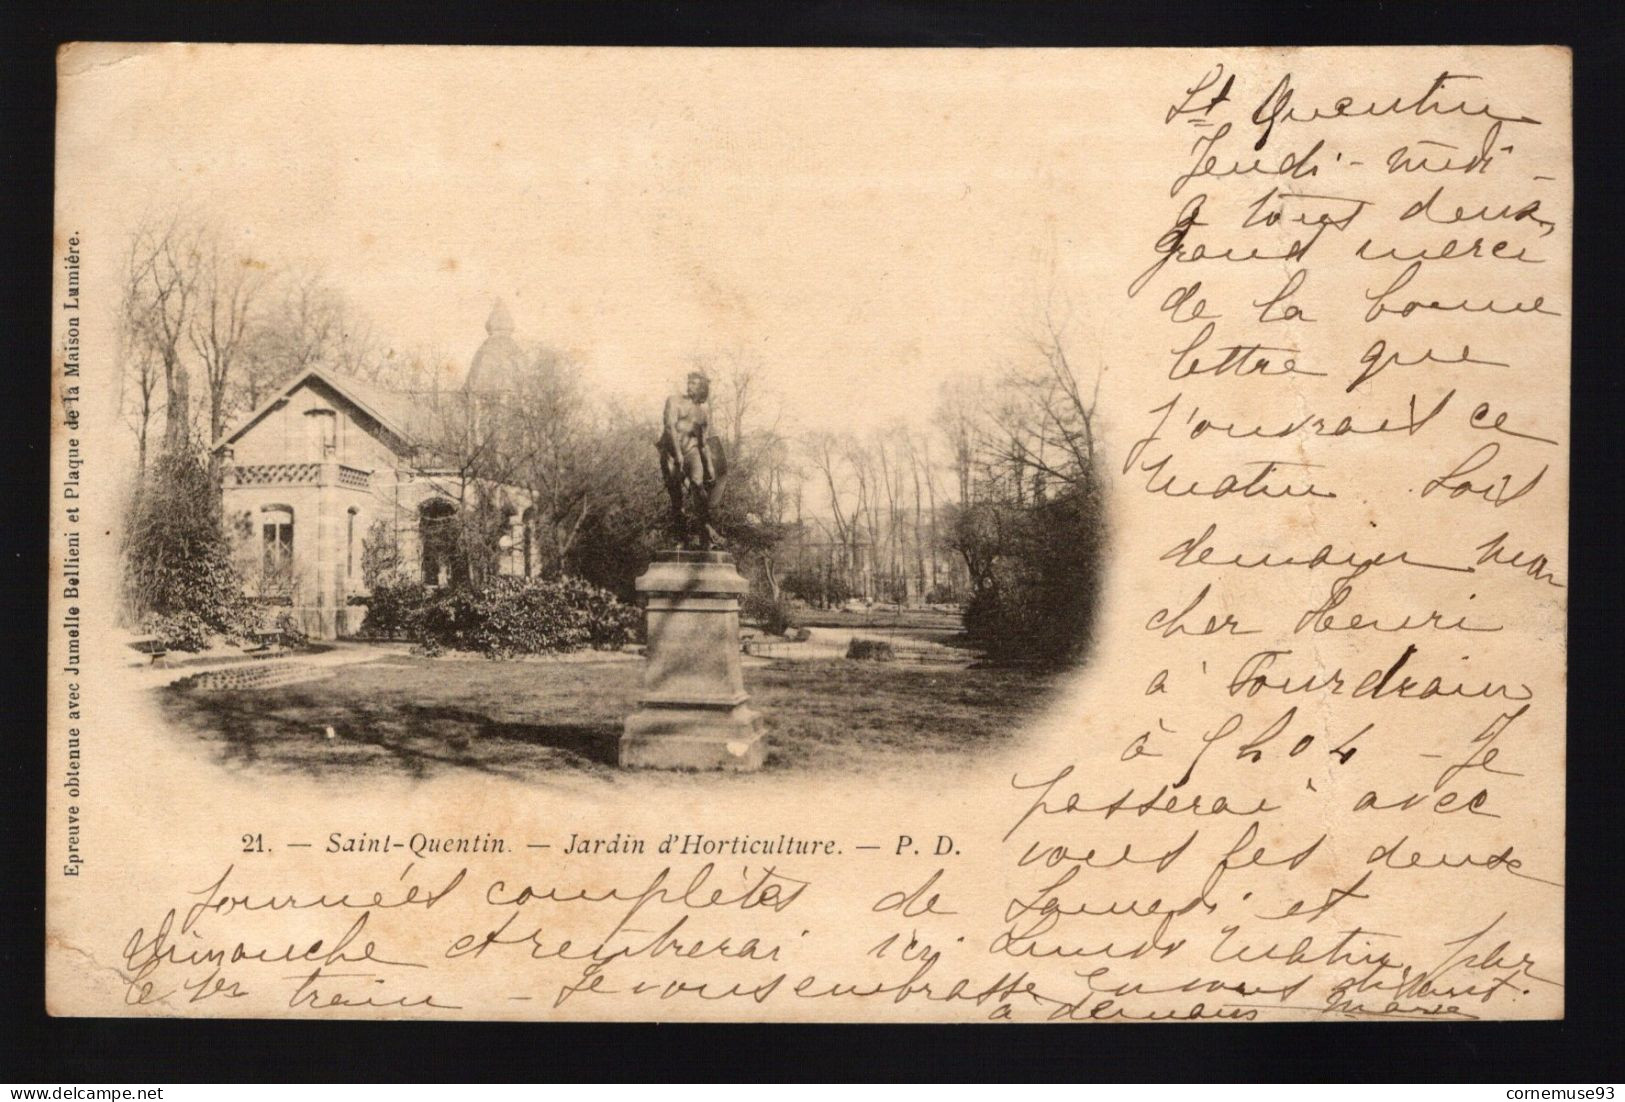 St Quentin
Jeudi - midi -
a tous deux,
grand merci
de la bonne
lettre que
j'ouvrais ce
matin. Sois
demain mon
cher Henri
à Tourdrain
à 5h04 - Je
passerai avec
vous les deux
journées complètes de Samedi et
Dimanche et rentrerai ici Lundi matin, par
le 1er train - Je vous embrasse en vous disant.
à demain Marie
21. — Saint-Quentin. — Jardin d'Horticulture. — P. D.
Epreuve obtenue avec Jumelle Bellieni et Plaque de la Maison Lumière.
cornemuse93